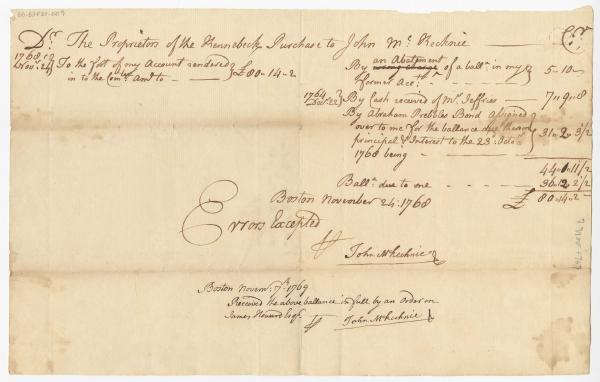 Dr. The Proprietors of the Kennebeck Purchase to John Mc. Kecknie Cr.
1768
Novr. 24 To the foot of my Account rendered
in to the Comtte Amt to £80-14-2
By an Abatement
wrong charge of a balla. in my
former Acct. 5-10-
1764
Decr. 22 By Cash received of Mr. Jeffries 7"9"8
By Abraham Prebbles Bond assigned
over to me for the ballance due thereon
principal & Interest to the 23d. Octor.
1768 being 31"2"3½
44"1"11½
Balla. due to me 36"12"2½
Boston November 24: 1768 £ 80"14"2
Errors Excepted
John McKechnie
Boston Novemr. 7th. 1769
Received the above ballance in full by an order on
James Howard Esqr.
John McKechnie
7 Nov. 1769